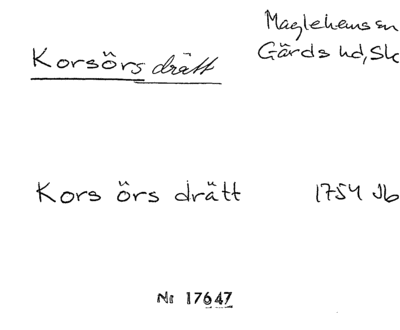 Maglehems sn
Korsörs drätt Gärds hd, Sk
Kors örs drätt 1754 Jb
Nr 17647